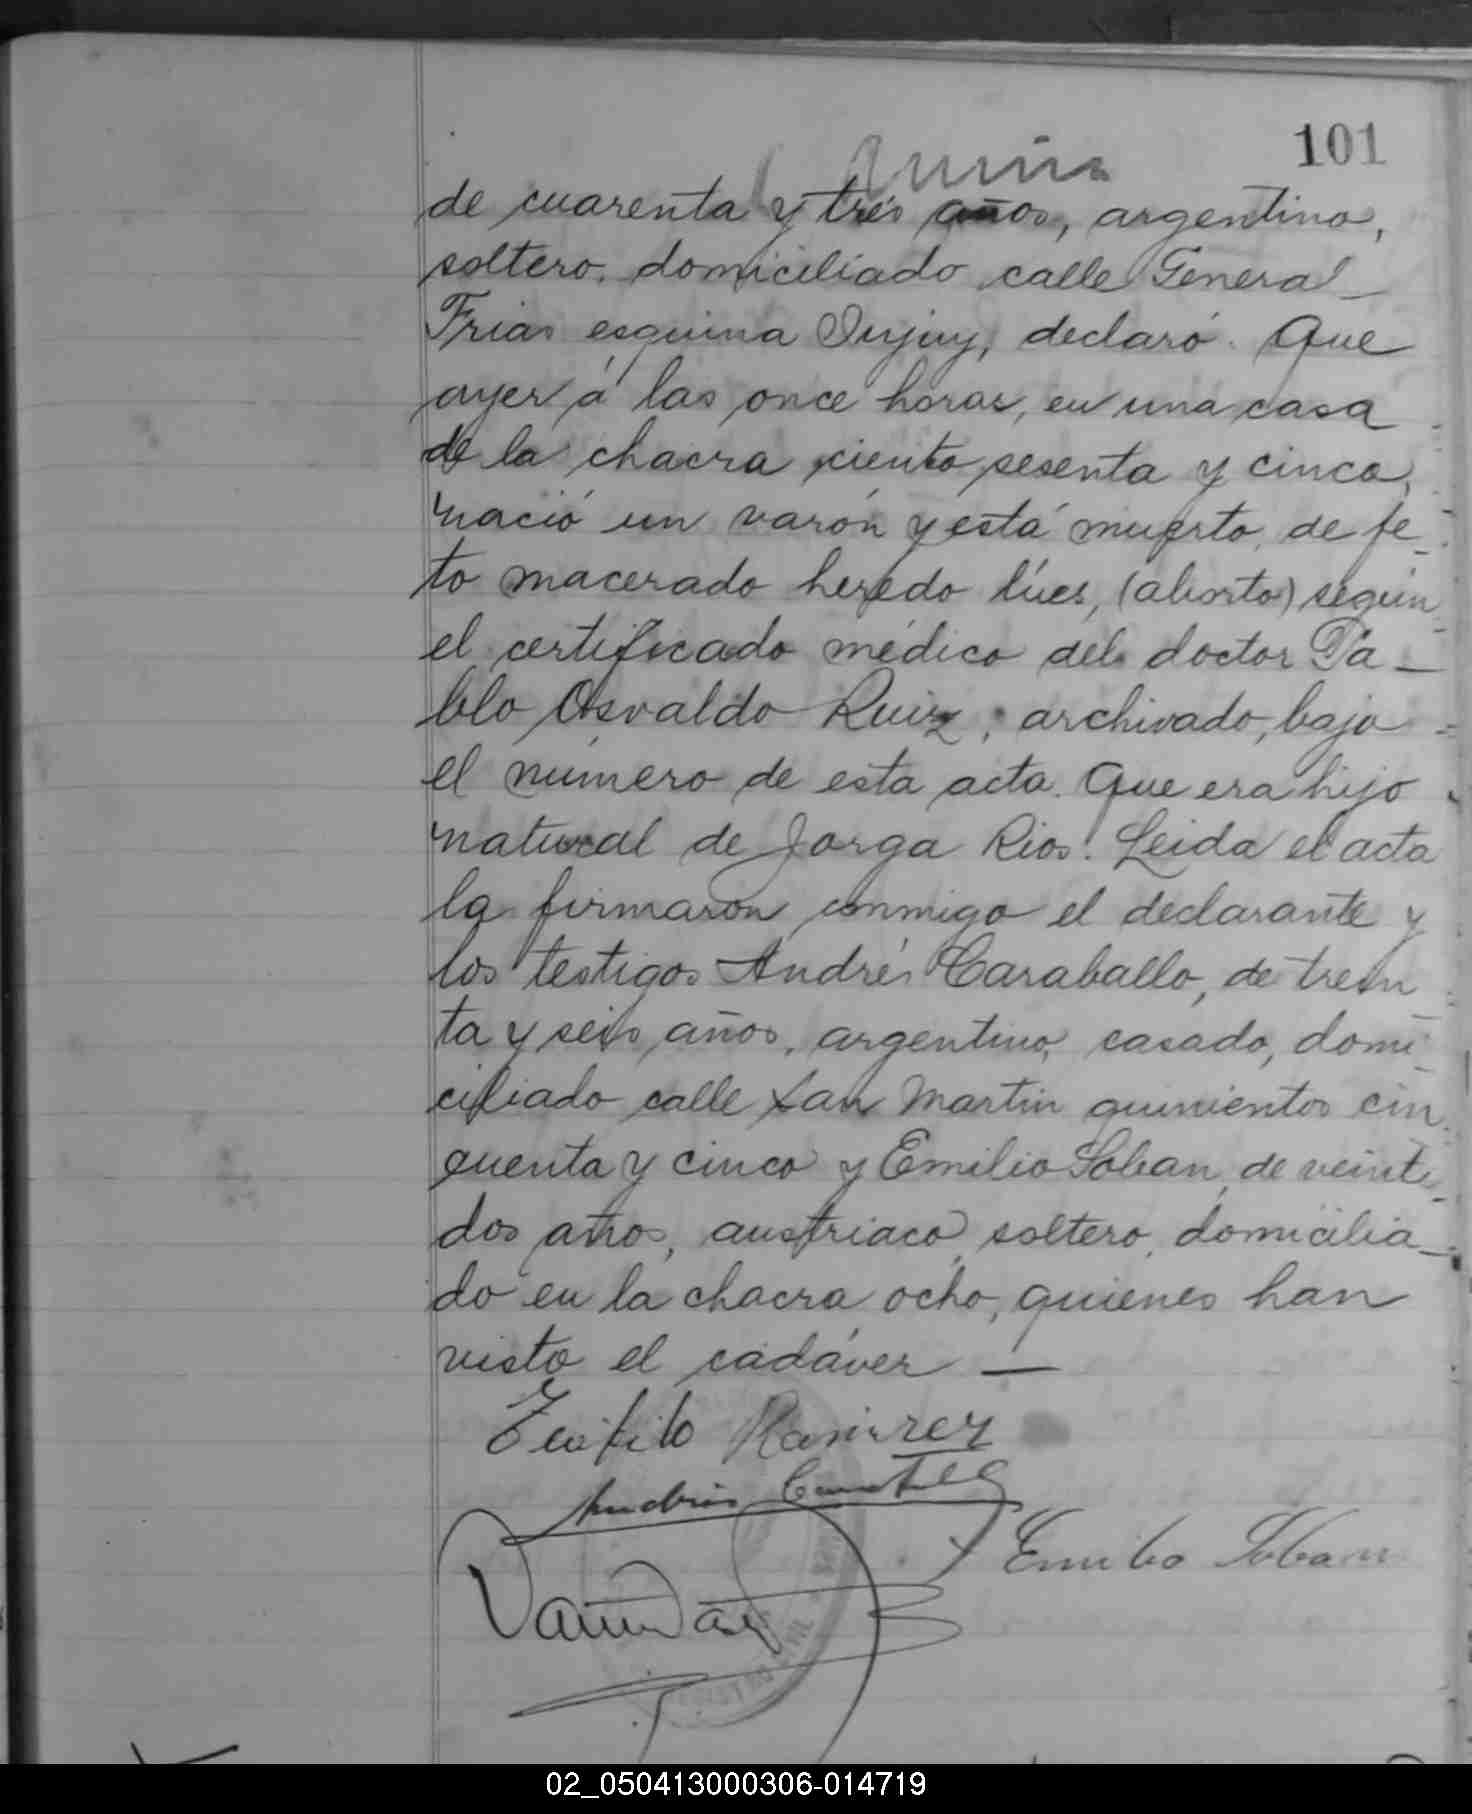 101
de cuarenta y tres años, argentino,
soltero, domiciliado calle General
Frias esquina Jujuy, declaró. Que
ayer á las once horas, en una casa
de la chacra ciento sesenta y cinco,
nació un varón y está muerto, de fe-
to macerado heredo lúes, (aborto) según
el certificado médico del doctor Pa-
blo Osvaldo Ruiz, archivado, bajo
el número de esta acta. Que era hijo
natural de Jorga Rios. Leida el acta
la firmaron conmigo el declarante y
los testigos Andrés Caraballo, de trein
ta y seis años, argentino, casado, domi
ciliado calle San Martin quinientos cin
cuenta y cinco y Emilio Soban, de veinti-
dos años, austriaco, soltero, domicilia-
do en la chacra ocho, quienes han
visto el cadáver —
Teofilo Ramirez
Andrés
Emilio Soban
REGISTRO CIVIL
02_050413000306-014719